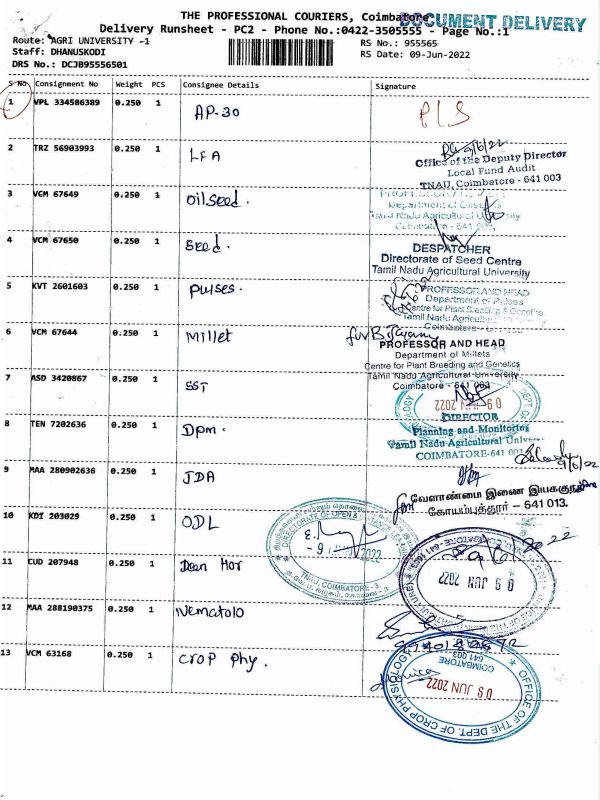 THE PROFESSIONAL COURIERS, Coimbatore
DOCUMENT DELIVERY
Delivery Runsheet - PC2 - Phone No.:0422-3505555 - Page No.:1
Route: AGRI UNIVERSITY -1
RS No.: 955565
Staff: DHANUSKODI
RS Date: 09-Jun-2022
DRS No.: DCJB95556501
S No Consignment No Weight PCS Consignee Details Signature
1 VPL 334586389 0.250 1 AP-30
P/S
2 TRZ 56903993 0.250 1 LFA
9/6/22
Office of the Deputy Director
Local Fund Audit
TNAU, Coimbatore - 641 003
3 VCM 67649 0.250 1 oilseed.
Department of Oilseeds
Tamil Nadu Agricultural
Coimbatore - 641 003
4 VCM 67650 0.250 1 seed.
DESPATCHER
Directorate of Seed Centre
Tamil Nadu Agricultural University
5 KVT 2601603 0.250 1 pulses.
PROFESSOR AND HEAD
Department of Pulses
Centre for Plant Breeding & Genetics
Tamil Nadu Agricultural
Coimbatore
6 VCM 67644 0.250 1 Millet
PROFESSOR AND HEAD
Department of Millets
Centre for Plant Breeding and Genetics
Tamil Nadu Agricultural University
Coimbatore - 641 003
7 ASD 3420867 0.250 1 SST
09 JUN 2022
8 TEN 7202636 0.250 1 Dpm.
DIRECTOR
Planning and Monitoring
Tamil Nadu Agricultural University
COIMBATORE-641 003
9/6/22
9 MAA 280902636 0.250 1 JDA
for வேளாண்மை இணை இயக்குநர்
கோயம்புத்தூர் - 641 013.
10 KDI 203029 0.250 1 ODL
DIRECTORATE OF OPEN &
- 9 JUN 2022
TNAU, COIMBATORE - 3
11 CUD 207948 0.250 1 Dean Hor
09 JUN 2022
12 MAA 288190375 0.250 1 Nematolo
13 VCM 63168 0.250 1 Crop Phy.
OFFICE OF THE DEPT. OF CROP PHYSIOLOGY
COIMBATORE
641 003
09 JUN 2022